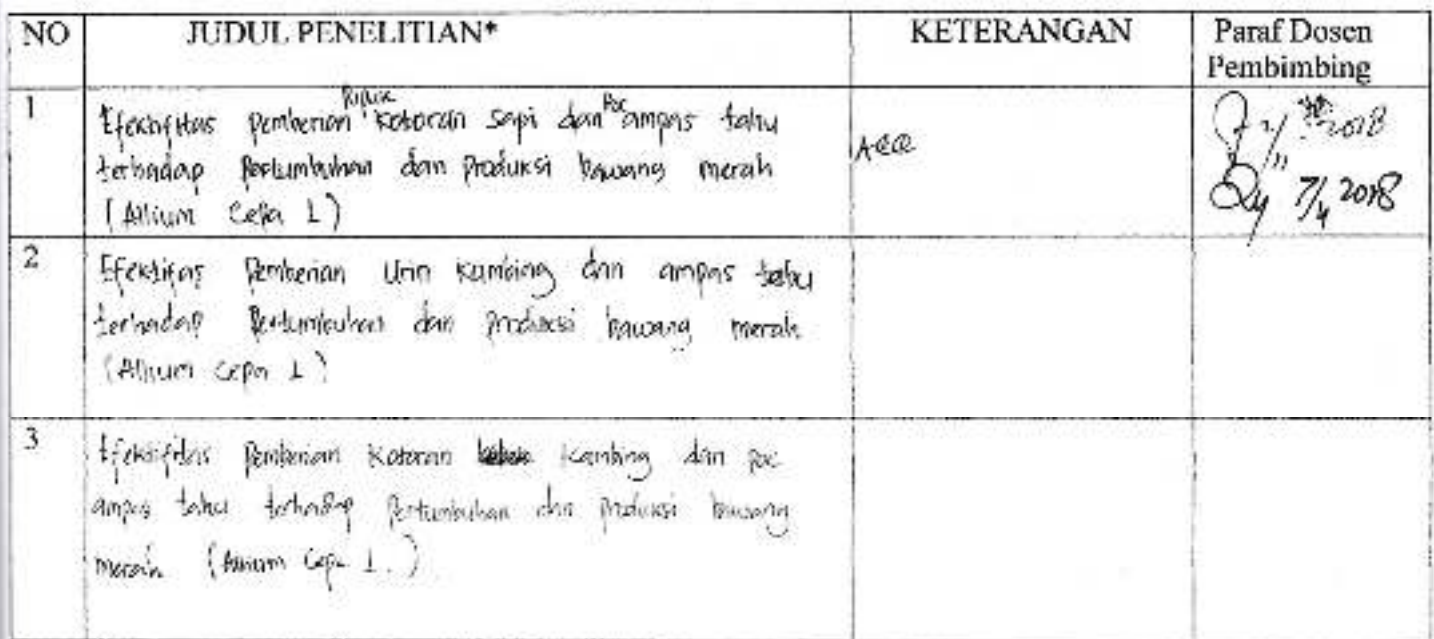 NO JUDUL PENELITIAN* KETERANGAN Paraf Dosen
Pembimbing
1 Efektifitas Pemberian Pupuk Kotoran Sapi dan Poc ampas tahu
terhadap Pertumbuhan dan Produksi bawang merah
(Allium Cepa L)
ACC
2018
7/4 2018
2 Efektifitas Pemberian Urin Kambing dan ampas tahu
terhadap Pertumbuhan dan Produksi bawang merah
(Allium Cepa L)
3 Efektifitas Pemberian Kotoran Kambing dan Poc
ampas tahu terhadap Pertumbuhan dan Produksi bawang
merah (Allium Cepa L.)